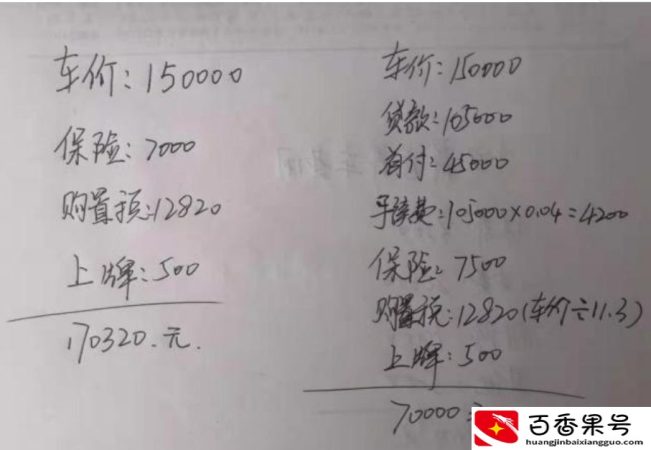 车价：150000
保险：7000
购置税：12820
上牌：500
170320.元.
车价：150000
贷款：105000
首付：45000
手续费：105000×0.04=4200
保险：7500
购置税：12820(车价÷11.3)
上牌：500
70000
百香果号
huangjinbaixiangguo.com